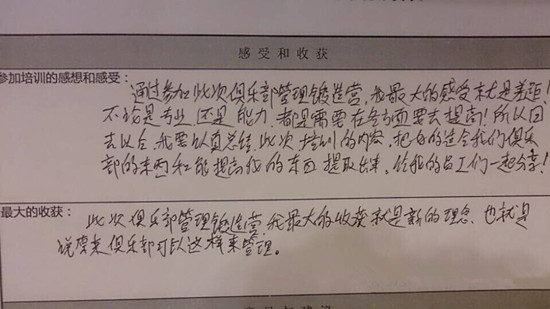 感受和收获
参加培训的感想和感受：
通过参加此次俱乐部管理锻造营，我最大的感受就是差距！
不论是专业还是能力，都是需要在各方面要去提高！所以回
去以后我要认真总结此次培训的内容，把好的适合我们俱乐
部的东西和能提高我的东西提取出来，给我的员工们一起分享！
最大的收获：
此次俱乐部管理锻造营，我最大的收获就是新的理念，也就是
说原来俱乐部可以这样来管理。